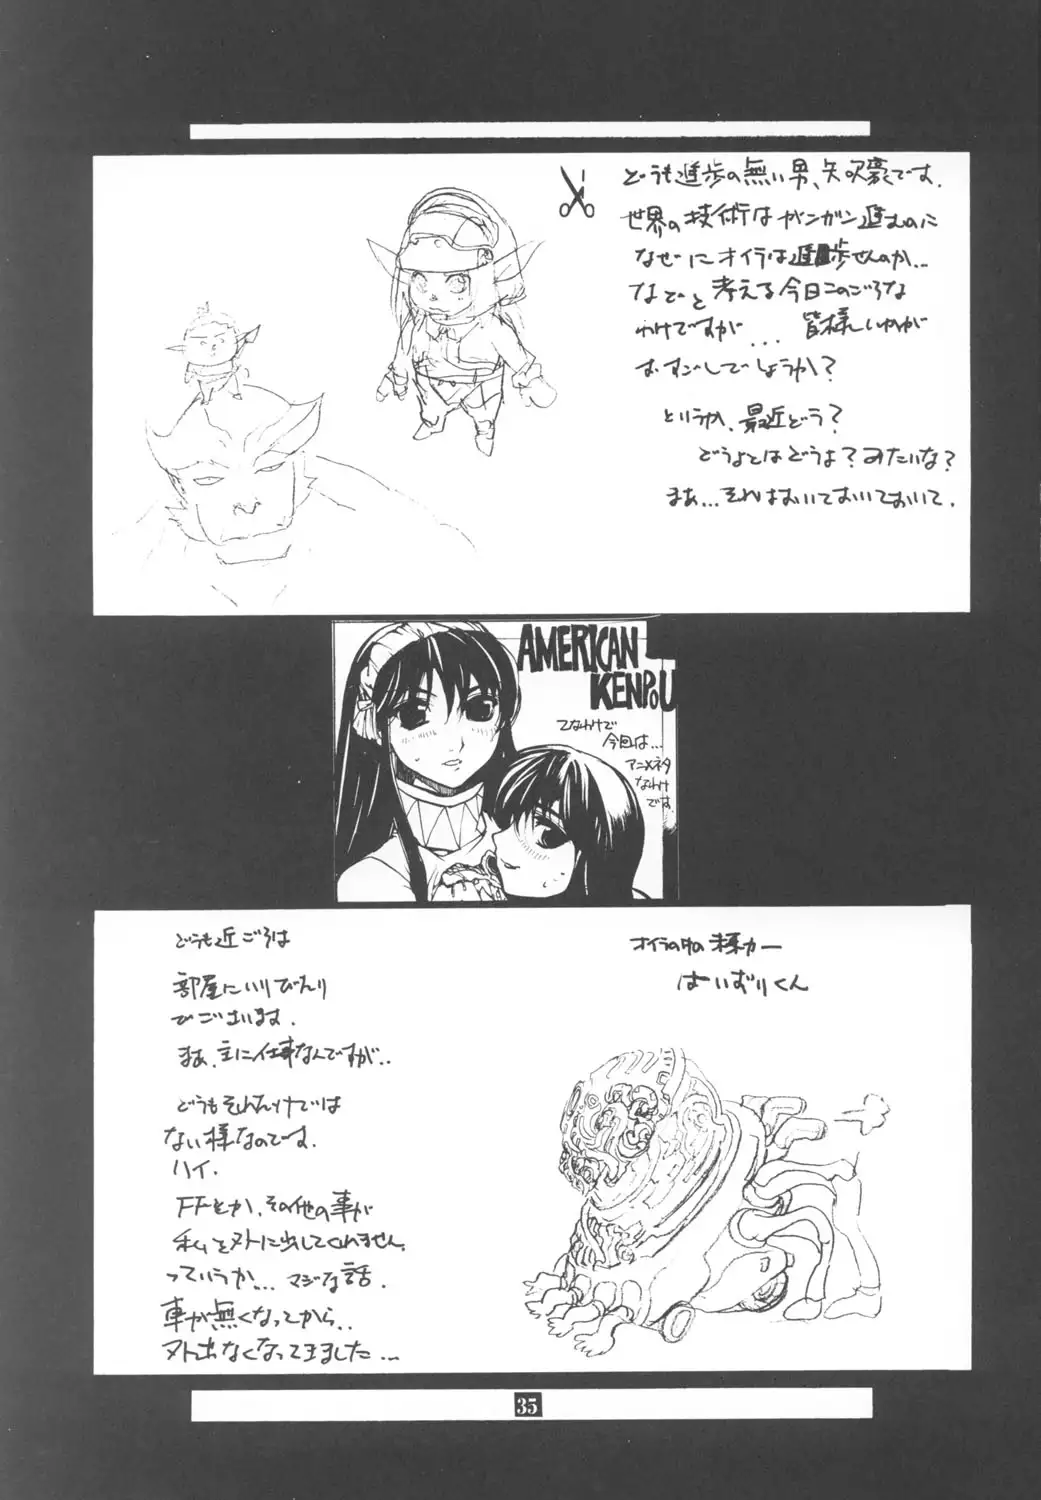 どうも進歩の無い男、矢吹豪です。
世界の技術はガンガン進むのに
なぜにオイラは進歩せんのか...
などと考える今日このごろな
わけですが...皆様いかが
おすごしでしょうか?
というか、最近どう?
どうよとはどうよ?みたいな?
まぁ...それはおいておいておいて.
AMERICAN
KENPoU
てなわけで
今回は...
アニメネタ
なわけ
です.
どうも近ごろは
部屋にいりびたり
でございます.
まぁ.主に仕事なんですが..
どうもそれだけでは
ない様なのです.
ハイ.
FFとか、その他の事が
私を外に出してくれません.
っていうか... マジな話.
車が無くなってから..
外出なくなってきました...
オイラの中の
はいずりくん
35